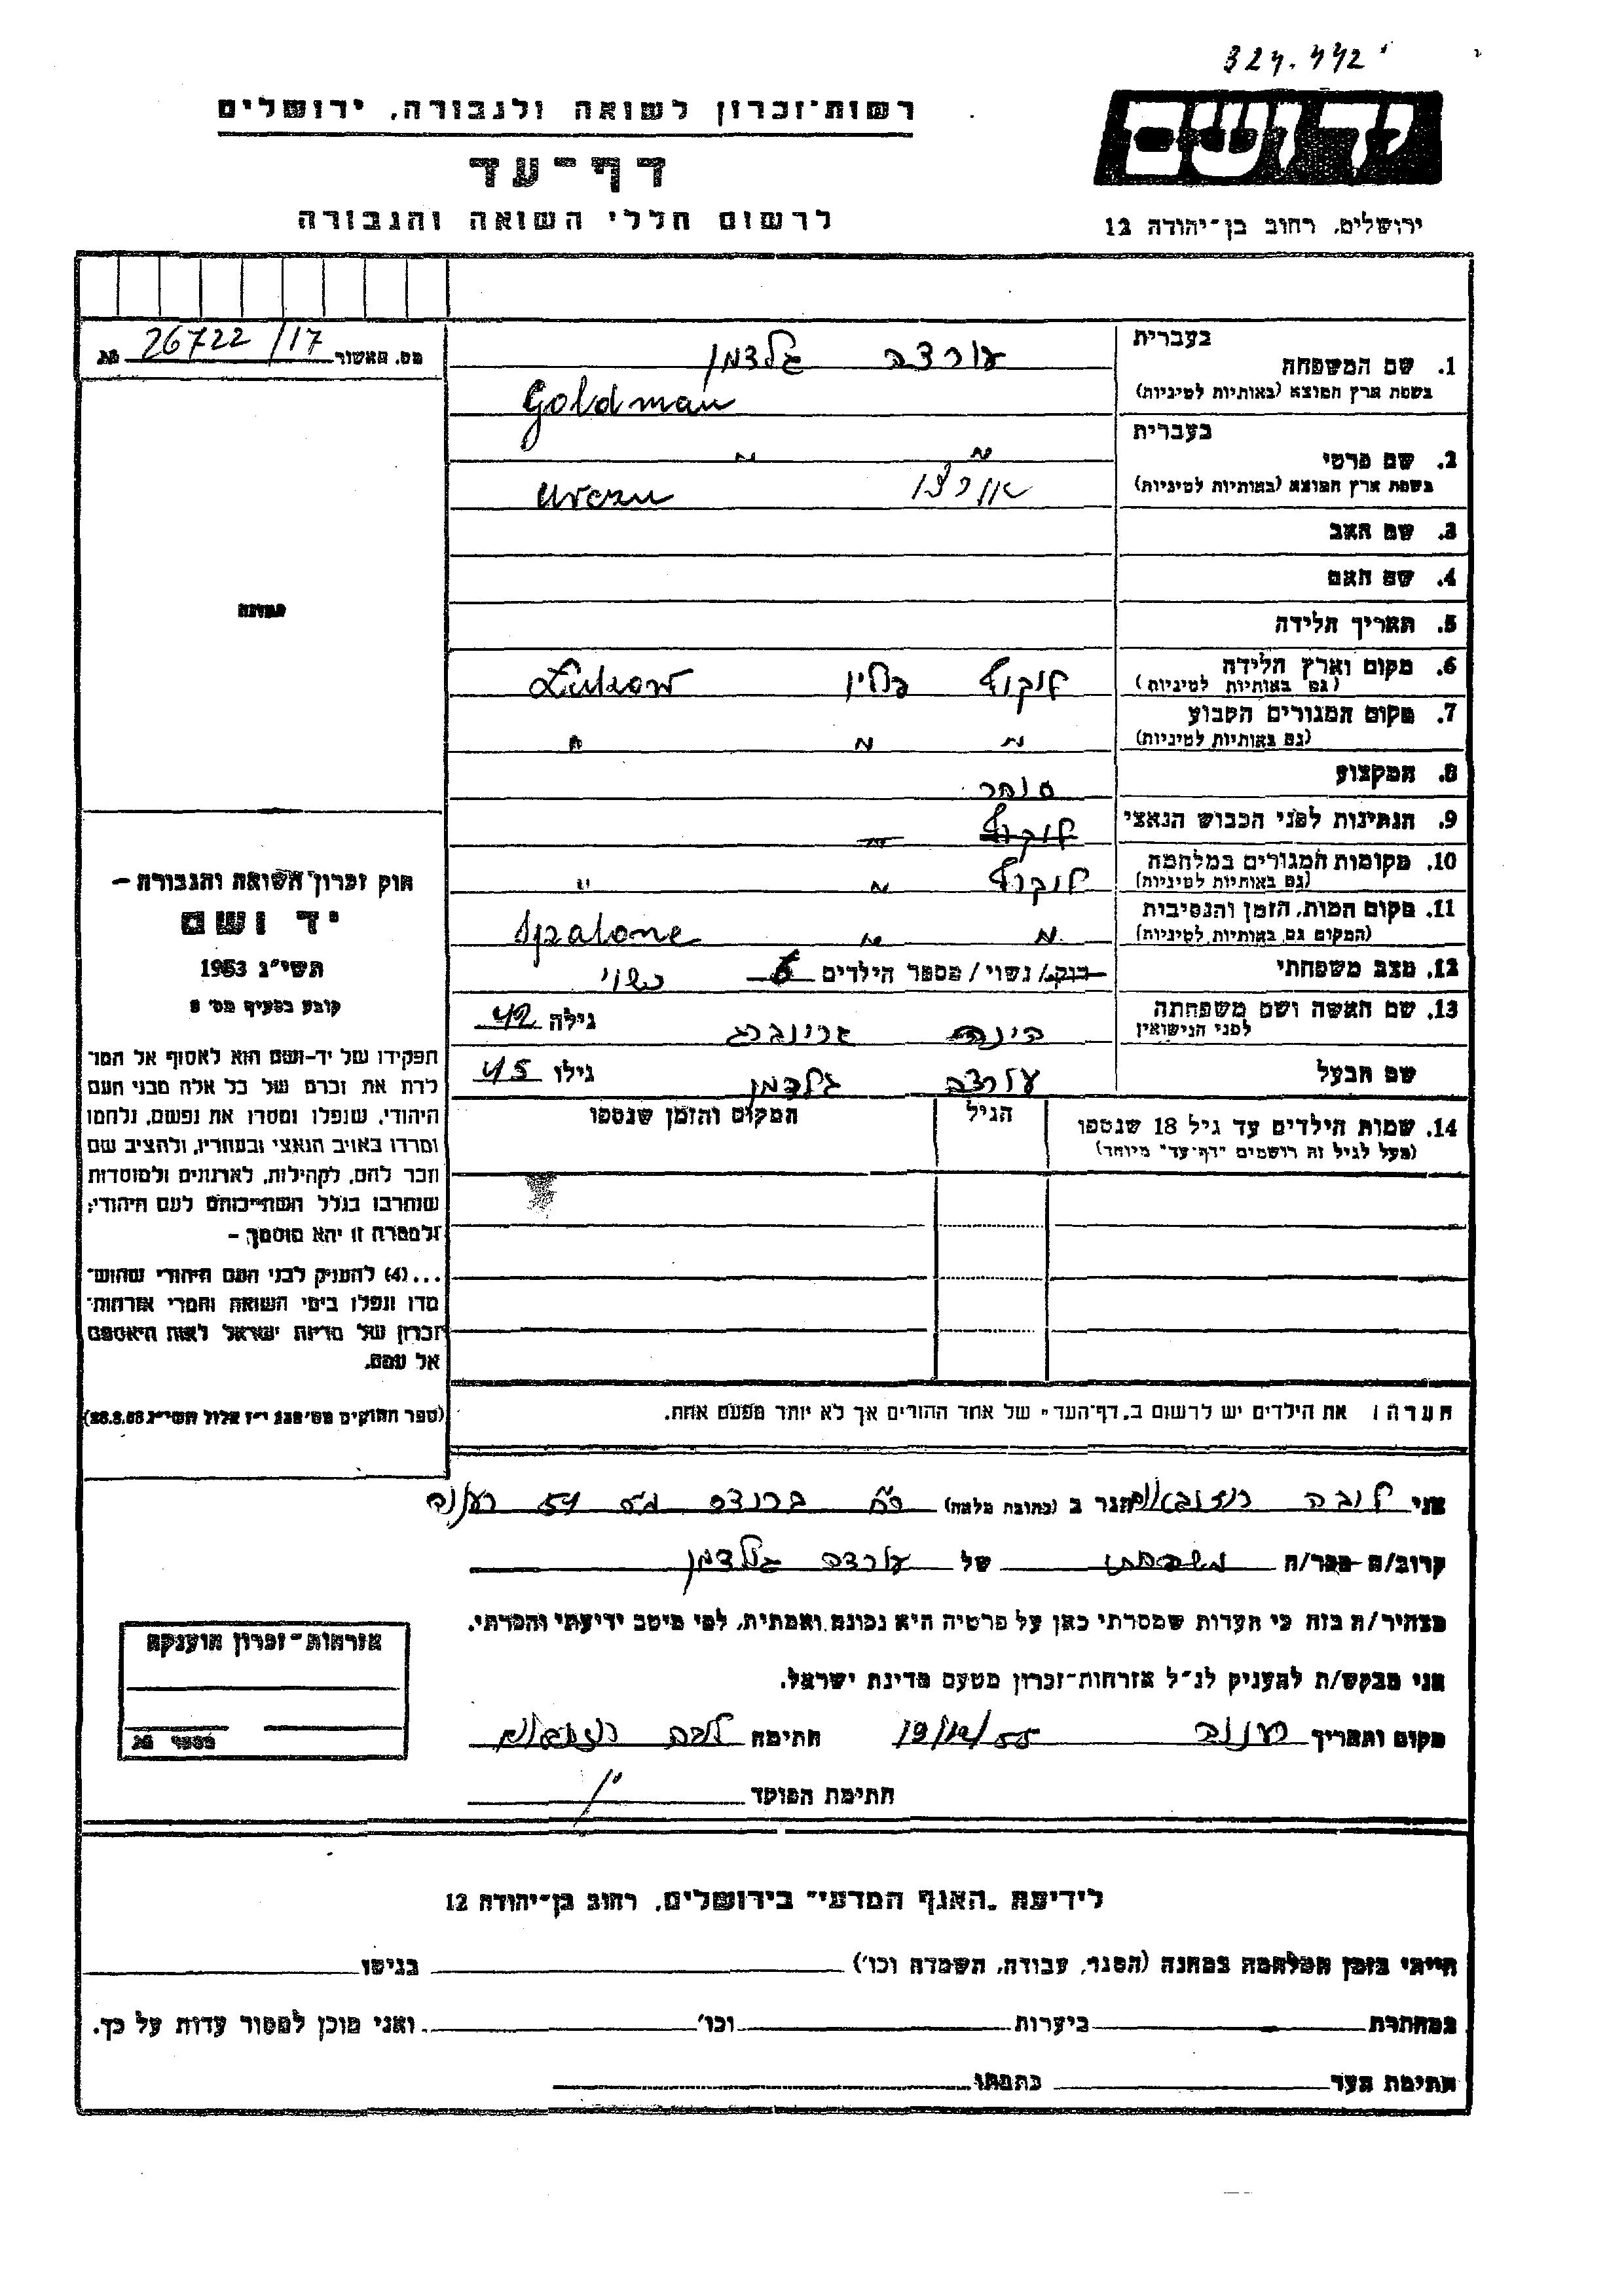 324.442
יד ושם
רשות־זכרון לשואה ולגבורה, ירושלים
דף־עד
לרשום חללי השואה והגבורה
ירושלים, רחוב בן־יהודה 12
מס. האשור 26722/17
בעברית גלדמן
1. שם המשפחה
בשפת ארץ המוצא (באותיות לטיניות) Goldman
בעברית " "
2. שם פרטי
בשפת ארץ המוצא (באותיות לטיניות)
3. שם האב
4. שם האם
5. תאריך הלידה
6. מקום וארץ הלידה לוקוב פולין Łukow
(גם באותיות לטיניות)
7. מקום המגורים הקבוע " " "
(גם באותיות לטיניות)
8. המקצוע סוחר
9. הנתינות לפני הכבוש הנאצי לוקוב "
10. מקומות המגורים במלחמה לוקוב " "
(גם באותיות לטיניות)
11. מקום המות, הזמן והנסיבות " " Spalone
(המקום גם באותיות לטיניות)
12. מצב משפחתי רוק/ נשוי/ מספר הילדים 6 נשוי
13. שם האשה ושם משפחתה גרינברג גילה 42
לפני הנישואין
שם הבעל גלדמן גילו 45
14. שמות הילדים עד גיל 18 שנספו הגיל המקום והזמן שנספו
(מעל לגיל זה רושמים "דף־עד" מיוחד)
תמונה
חוק זכרון השואה והגבורה –
יד ושם
תשי״ג 1953
קובע בסעיף מס׳ 2
תפקידו של יד־ושם הוא לאסוף אל המו־
לדת את זכרם של כל אלה מבני העם
היהודי, שנפלו ומסרו את נפשם, נלחמו
ומרדו באויב הנאצי ובעוזריו, ולהציב שם
וזכר להם, לקהילות, לארגונים ולמוסדות
שנחרבו בגלל השתייכותם לעם היהודי;
ולמטרה זו יהא מוסמך –
...(4) להעניק לבני העם היהודי שהוש־
מדו ונפלו בימי השואה והמרי אזרחות־
זכרון של מדינת ישראל לאות היאספם
אל עמם.
הערה: את הילדים יש לרשום ב„דף־העד" של אחד ההורים אך לא יותר מפעם אחת.
אני לובה הגר ב (כתובת מלאה) 54 רעננה
קרוב/ה מכר/ה משפחתי של גלדמן
מצהיר/ה בזה כי העדות שמסרתי כאן על פרטיה היא נכונה ואמתית, לפי מיטב ידיעתי והכרתי.
אני מבקש/ת להעניק לנ״ל אזרחות־זכרון מטעם מדינת ישראל.
מקום ותאריך רעננה 19/12/55 חתימה
חתימת הפוקד
אזרחות־זכרון הוענקה
מספר
לידיעת „האגף המדעי" בירושלים, רחוב בן־יהודה 12
הייתי בזמן המלחמה במחנה (הסגר, עבודה, השמדה וכו׳) בגיטו
במחתרת ביערות וכו׳ ואני מוכן למסור עדות על כך.
חתימת העד כתבתו